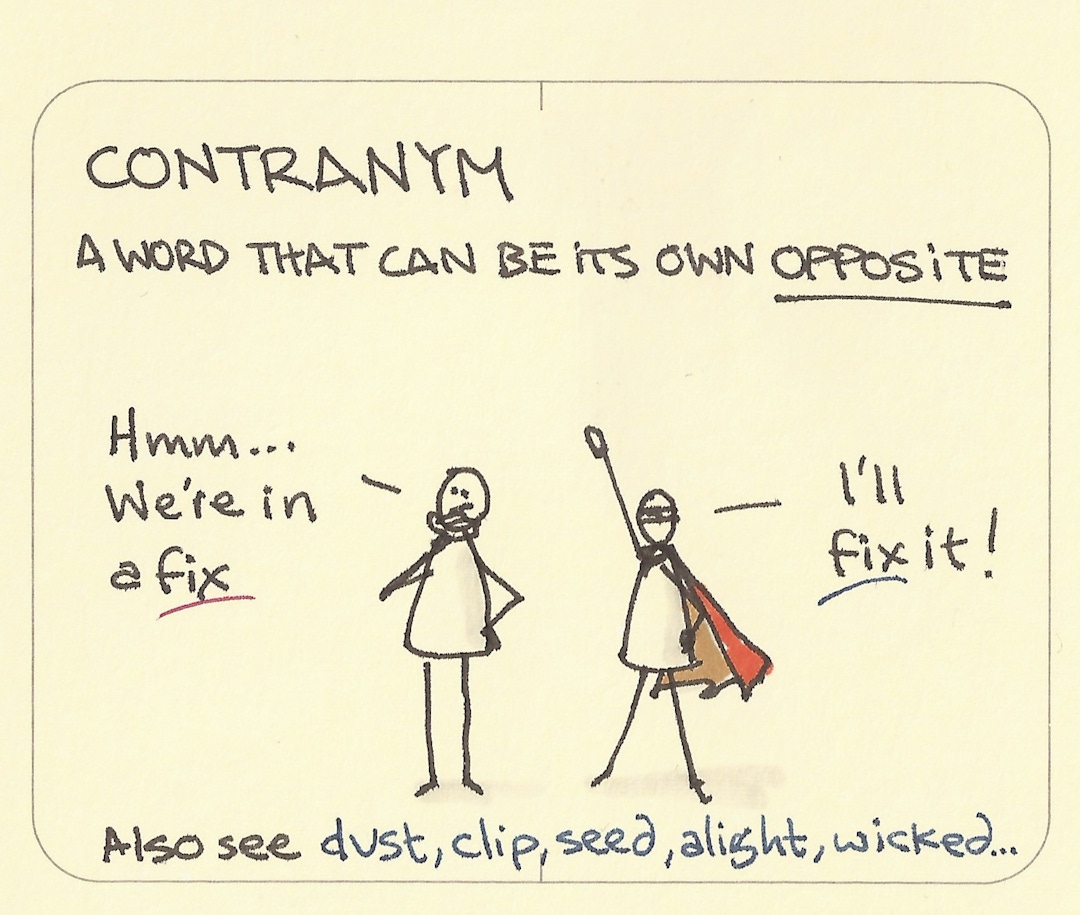 CONTRANYM
A WORD THAT CAN BE ITS OWN OPPOSITE
Hmm...
We're in
a fix
I'll
fix it!
Also see dust, clip, seed, alight, wicked...